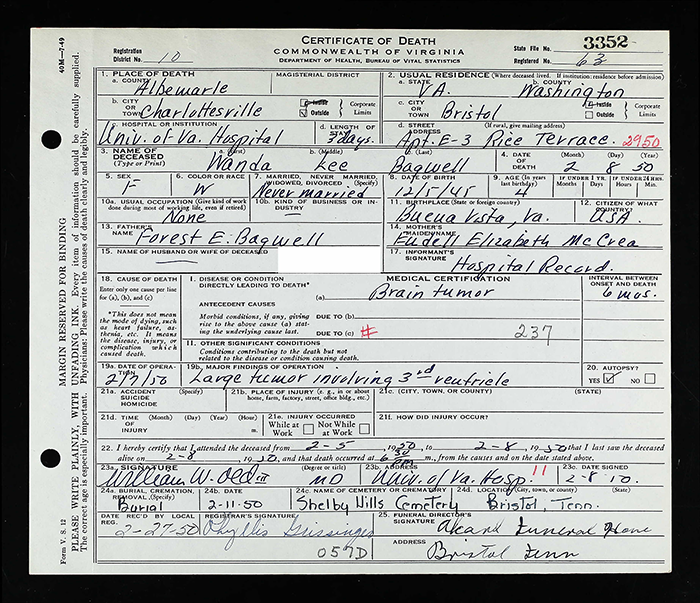 CERTIFICATE OF DEATH
COMMONWEALTH OF VIRGINIA
DEPARTMENT OF HEALTH, BUREAU OF VITAL STATISTICS
40M—7-49
Registration District No. 10
State File No. 3352
Registered No. 63
1. PLACE OF DEATH
a. COUNTY Albemarle
MAGISTERIAL DISTRICT
2. USUAL RESIDENCE (Where deceased lived. If institution: residence before admission)
a. STATE VA.
b. COUNTY Washington
b. CITY OR TOWN Charlottesville
Inside Outside Corporate Limits
c. CITY OR TOWN Bristol
Inside Outside Corporate Limits
c. HOSPITAL OR INSTITUTION Univ. of Va. Hospital
d. LENGTH OF STAY 3 days.
d. STREET ADDRESS (If rural, give mailing address) Apt. E-3 Rice Terrace. 2950
3. NAME OF DECEASED (Type or Print)
a. (First) Wanda
b. (Middle) Lee
c. (Last) Bagwell
4. DATE OF DEATH (Month) (Day) (Year) 2 - 8 - 50
5. SEX F
6. COLOR OR RACE W
7. MARRIED, NEVER MARRIED, WIDOWED, DIVORCED (Specify) Never married
8. DATE OF BIRTH 12/5/45
9. AGE (In years last birthday) 4
IF UNDER 1 YR. Months Days
IF UNDER 24 HRS. Hours Min.
10a. USUAL OCCUPATION (Give kind of work done during most of working life, even if retired) None
10b. KIND OF BUSINESS OR INDUSTRY —
11. BIRTHPLACE (State or foreign country) Buena Vista, Va.
12. CITIZEN OF WHAT COUNTRY? USA.
13. FATHER'S NAME Forest E. Bagwell
14. MOTHER'S MAIDEN NAME Eudell Elizabeth McCrea
15. NAME OF HUSBAND OR WIFE OF DECEASED —
17. INFORMANT'S SIGNATURE Hospital Record.
18. CAUSE OF DEATH
Enter only one cause per line for (a), (b), and (c)
*This does not mean the mode of dying, such as heart failure, asthenia, etc. It means the disease, injury, or complication which caused death.
MEDICAL CERTIFICATION
INTERVAL BETWEEN ONSET AND DEATH
I. DISEASE OR CONDITION DIRECTLY LEADING TO DEATH*
(a) Brain tumor
6 mos.
ANTECEDENT CAUSES
Morbid conditions, if any, giving rise to the above cause (a) stating the underlying cause last.
DUE TO (b)
DUE TO (c) # 237
II. OTHER SIGNIFICANT CONDITIONS
Conditions contributing to the death but not related to the disease or condition causing death.
19a. DATE OF OPERATION 2/7/50
19b. MAJOR FINDINGS OF OPERATION Large tumor involving 3rd ventricle
20. AUTOPSY? YES ✓ NO
21a. ACCIDENT SUICIDE HOMICIDE
21b. PLACE OF INJURY (e. g., in or about home, farm, factory, street, office bldg., etc.)
21c. (CITY, TOWN, OR COUNTY) (STATE)
21d. TIME OF INJURY (Month) (Day) (Year) (Hour) m.
21e. INJURY OCCURRED While at Work Not While at Work
21f. HOW DID INJURY OCCUR?
22. I hereby certify that I attended the deceased from 2-5, 1950, to 2-8, 1950 that I last saw the deceased
alive on 2-8, 1950, and that death occurred at 6 30 m., from the causes and on the date stated above.
23a. SIGNATURE William W. Old
(Degree or title) MD
23b. ADDRESS Univ. of Va. Hosp. 11
23c. DATE SIGNED 2-8-50.
24a. BURIAL, CREMATION, REMOVAL (Specify) Burial
24b. DATE 2-11-50
24c. NAME OF CEMETERY OR CREMATORY Shelby Hills Cemetery
24d. LOCATION (City, town, or county) (State) Bristol, Tenn.
DATE REC'D BY LOCAL REG. 2-27-50
REGISTRAR'S SIGNATURE Phyllis
057D
25. FUNERAL DIRECTOR'S SIGNATURE Akard Funeral Home
ADDRESS Bristol Tenn
Form V. S. 12
MARGIN RESERVED FOR BINDING
PLEASE WRITE PLAINLY, WITH UNFADING INK. Every item of information should be carefully supplied.
The correct age is especially important. Physicians: Please write the causes of death clearly and legibly.